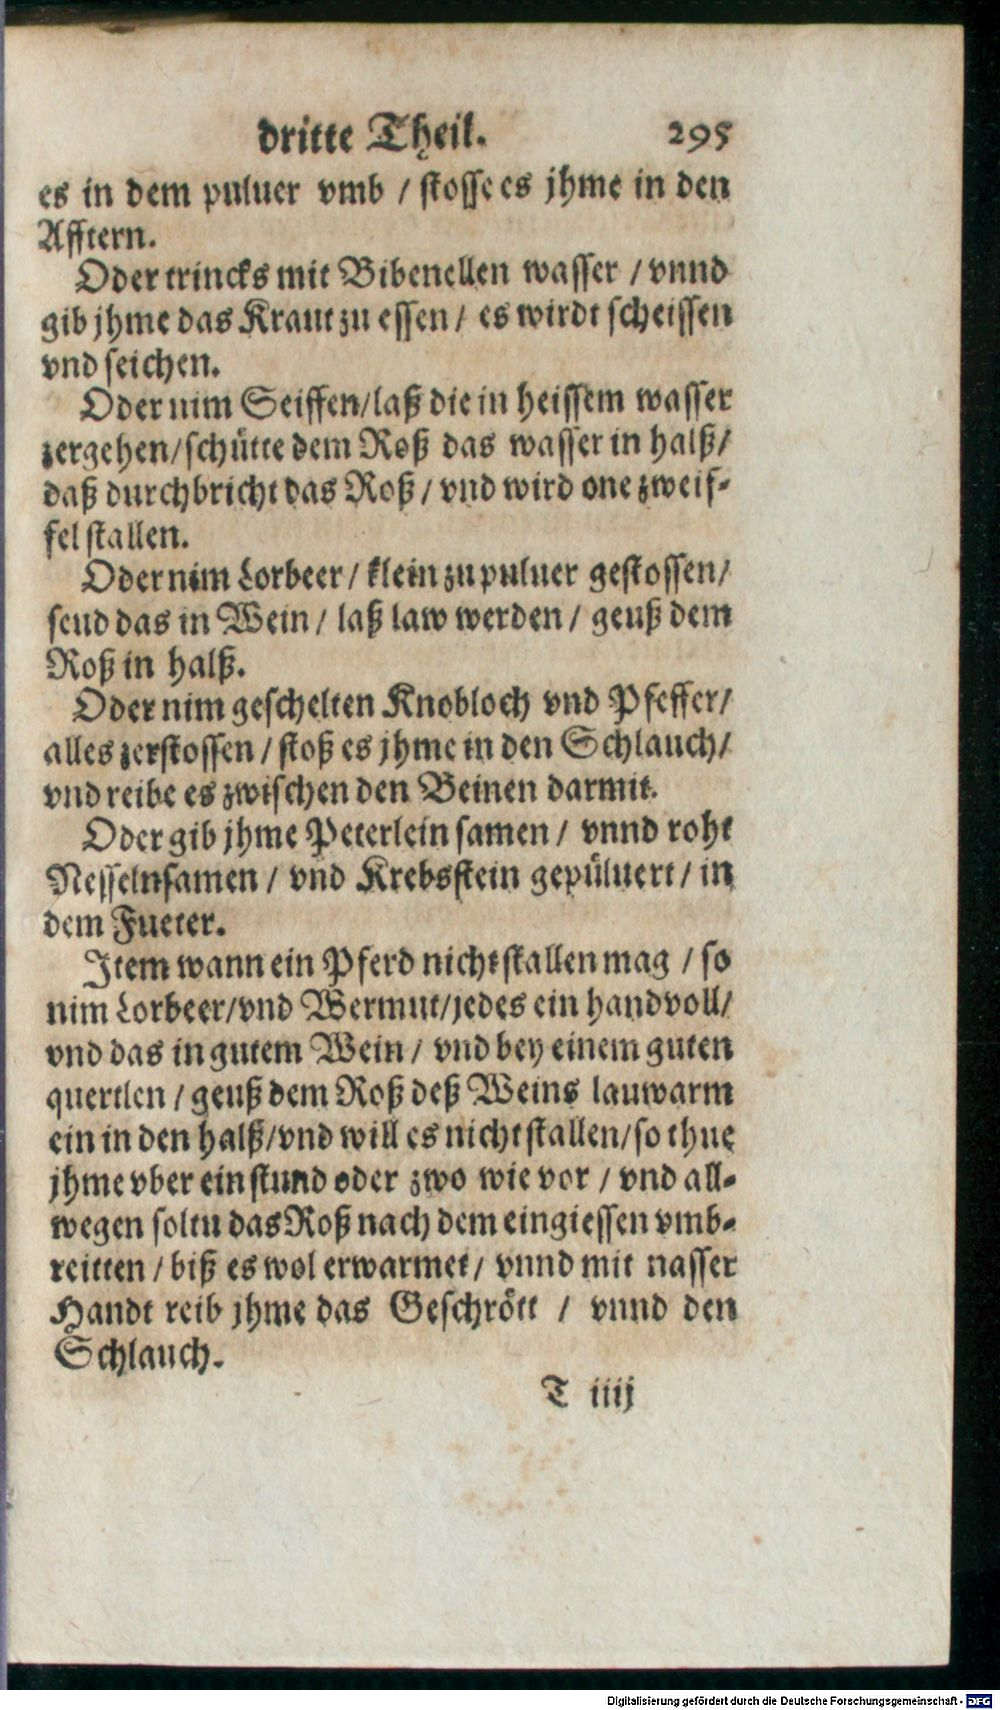 dritte Theil. 295
es in dem puluer vmb / stosse es jhme in den
Afftern.
Oder trincks mit Bibenellen wasser / vnnd
gib jhme das Kraut zu essen / es wirdt scheissen
vnd seichen.
Oder nim Seiffen/laß die in heissem wasser
zergehen/schütte dem Roß das wasser in halß/
daß durchbricht das Roß / vnd wird one zweif-
fel stallen.
Oder nim Lorbeer / klein zu puluer gestossen/
seud das in Wein / laß law werden / geuß dem
Roß in halß.
Oder nim geschelten Knobloch vnd Pfeffer/
alles zerstossen / stoß es jhme in den Schlauch/
vnd reibe es zwischen den Beinen darmit.
Oder gib jhme Peterlein samen / vnnd roht
Nesselnsamen / vnd Krebsstein gepüluert / in
dem Fueter.
Item wann ein Pferd nicht stallen mag / so
nim Lorbeer/vnd Wermut/jedes ein handvoll/
vnd das in gutem Wein / vnd bey einem guten
quertlen / geuß dem Roß deß Weins lauwarm
ein in den halß/vnd will es nicht stallen/so thue
jhme vber ein stund oder zwo wie vor / vnd all-
wegen soltu das Roß nach dem eingiessen vmb-
reitten / biß es wol erwarmet / vnnd mit nasser
Handt reib jhme das Geschrött / vnnd den
Schlauch.
T iiij
Digitalisierung gefördert durch die Deutsche Forschungsgemeinschaft - DFG